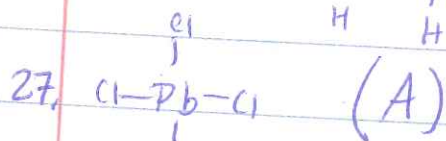 Cl H H
27. Cl-Pb-Cl (A)